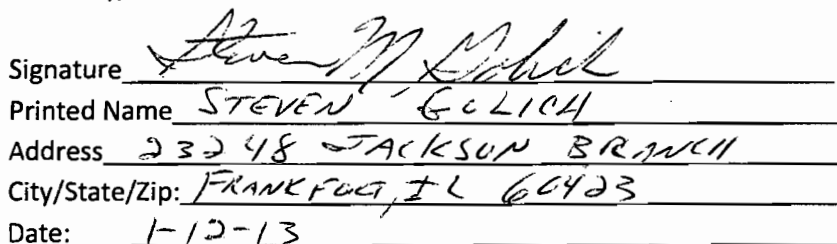 Signature Steven M Golich
Printed Name STEVEN GOLICH
Address 23248 JACKSON BRANCH
City/State/Zip: FRANKFORT, IL 60423
Date: 1-12-13